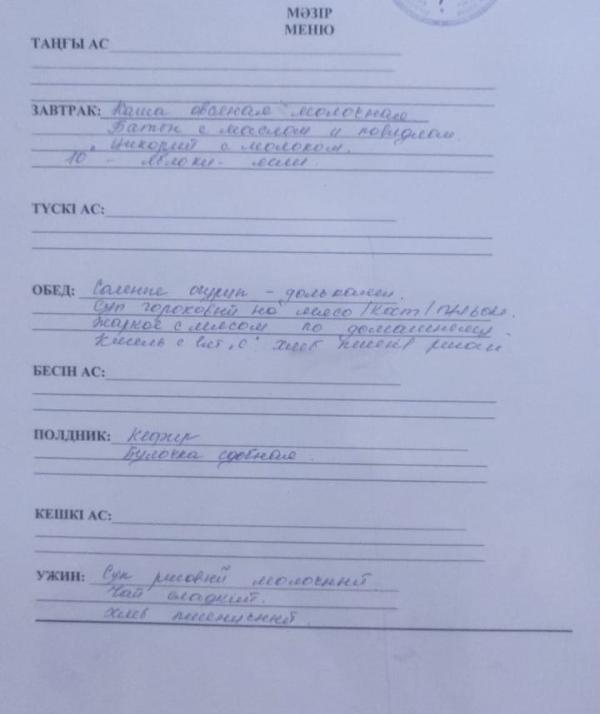 МӘЗІР
МЕНЮ
ТАҢҒЫ АС
ЗАВТРАК: Каша овсяная молочная
Батон с маслом и повидлом.
Цикорий с молоком.
10 - яблоки
ТҮСКІ АС:
ОБЕД: Соленые огурцы - дольками
Суп гороховый на мясо/кост/бульон.
Жаркое с мясом по домашнему.
Кисель с вит „С" хлеб пшен/ ржан
БЕСІН АС:
ПОЛДНИК: Кефир
Булочка сдобная.
КЕШКІ АС:
УЖИН: Суп рисовый молочный
Чай сладкий.
Хлеб пшеничный.